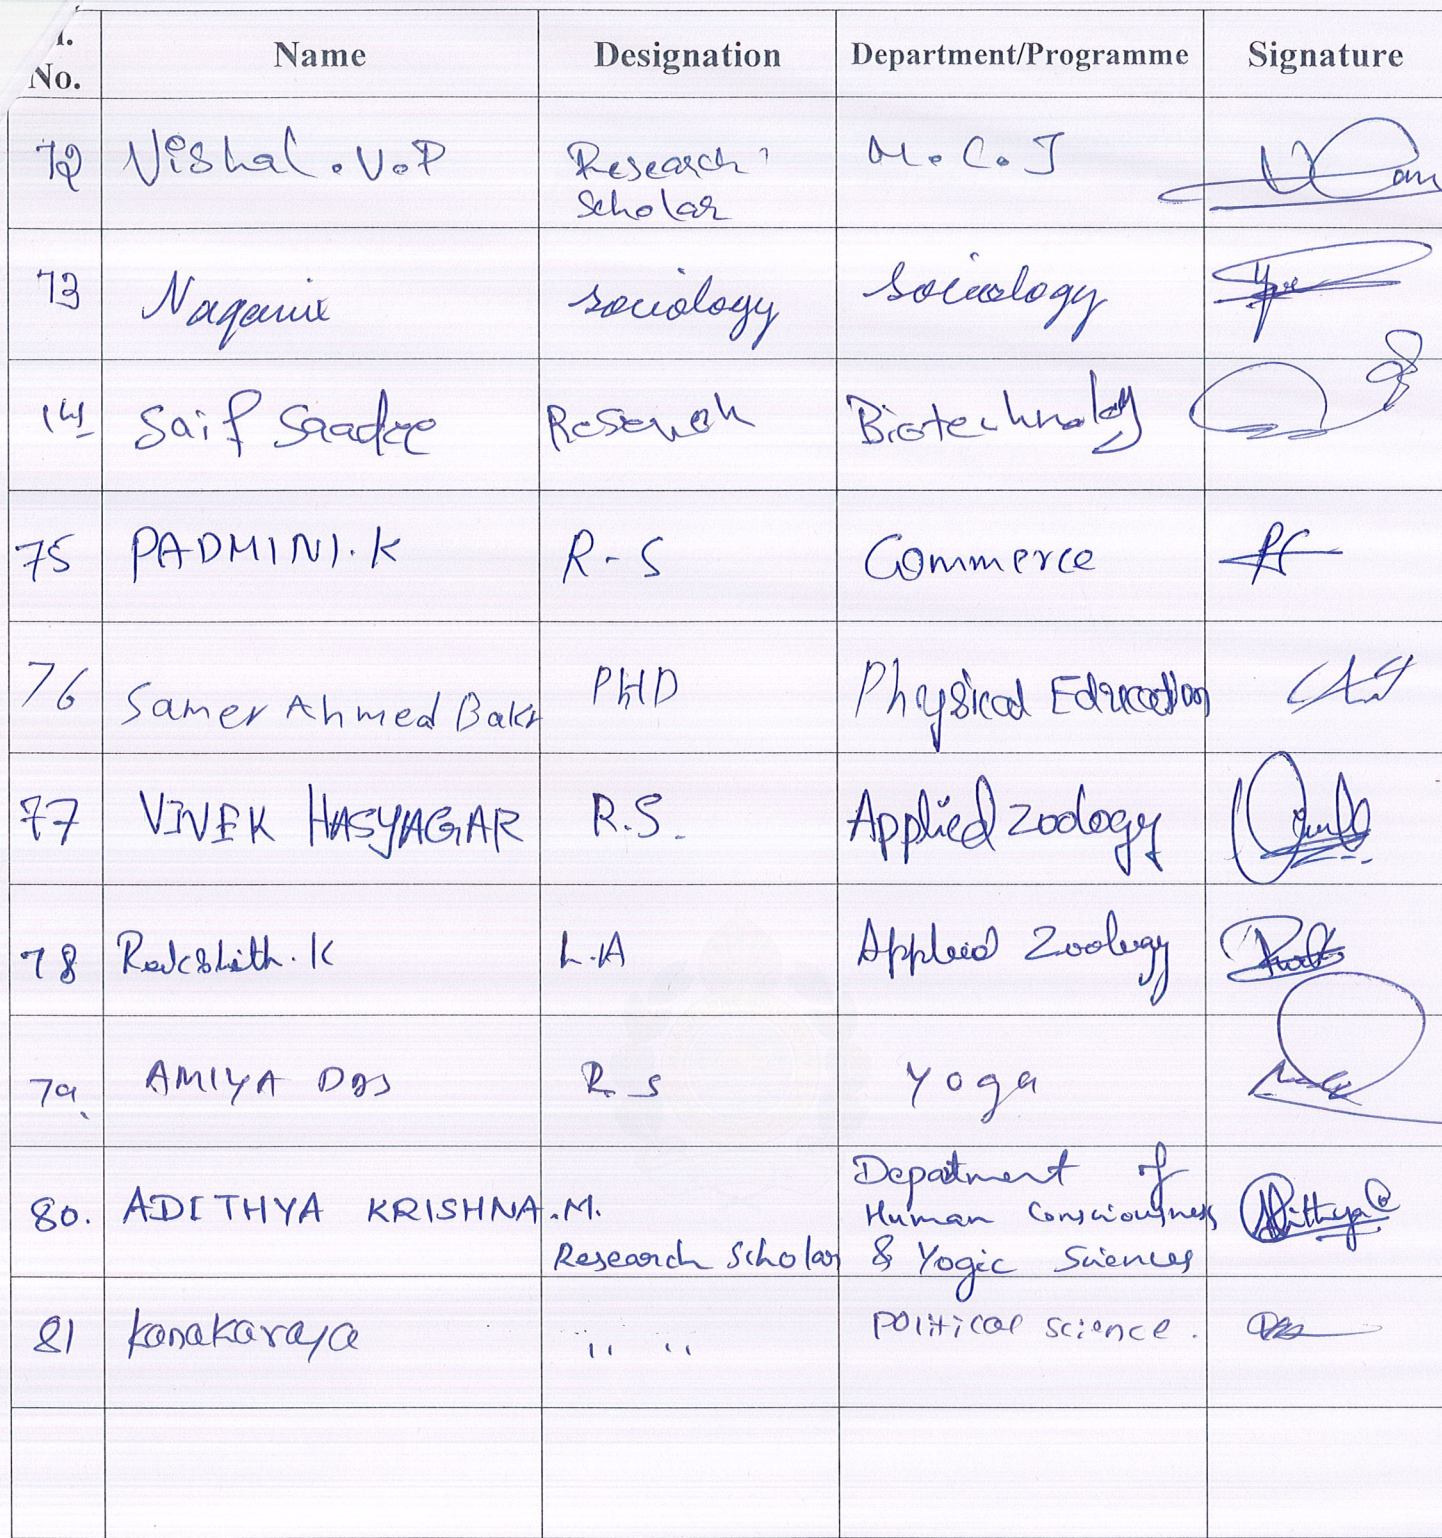 No. Name Designation Department/Programme Signature
72 Vishal . V.P Research Scholar M.C.J
73 sociology sociology
74 Saif Biotechnology
75 PADMINI.K R-S Commerce
76 Samer Ahmed Bakr PHD Physical Education
77 VIVEK HASYAGAR R.S. Applied Zoology
78 Rakshith.K Applied Zoology
79 AMIYA DAS R S Yoga
80. ADITHYA KRISHNA.M. Research Scholar Department of Human Consciousness & Yogic Sciences
81 Kanakaraya " " Political science.